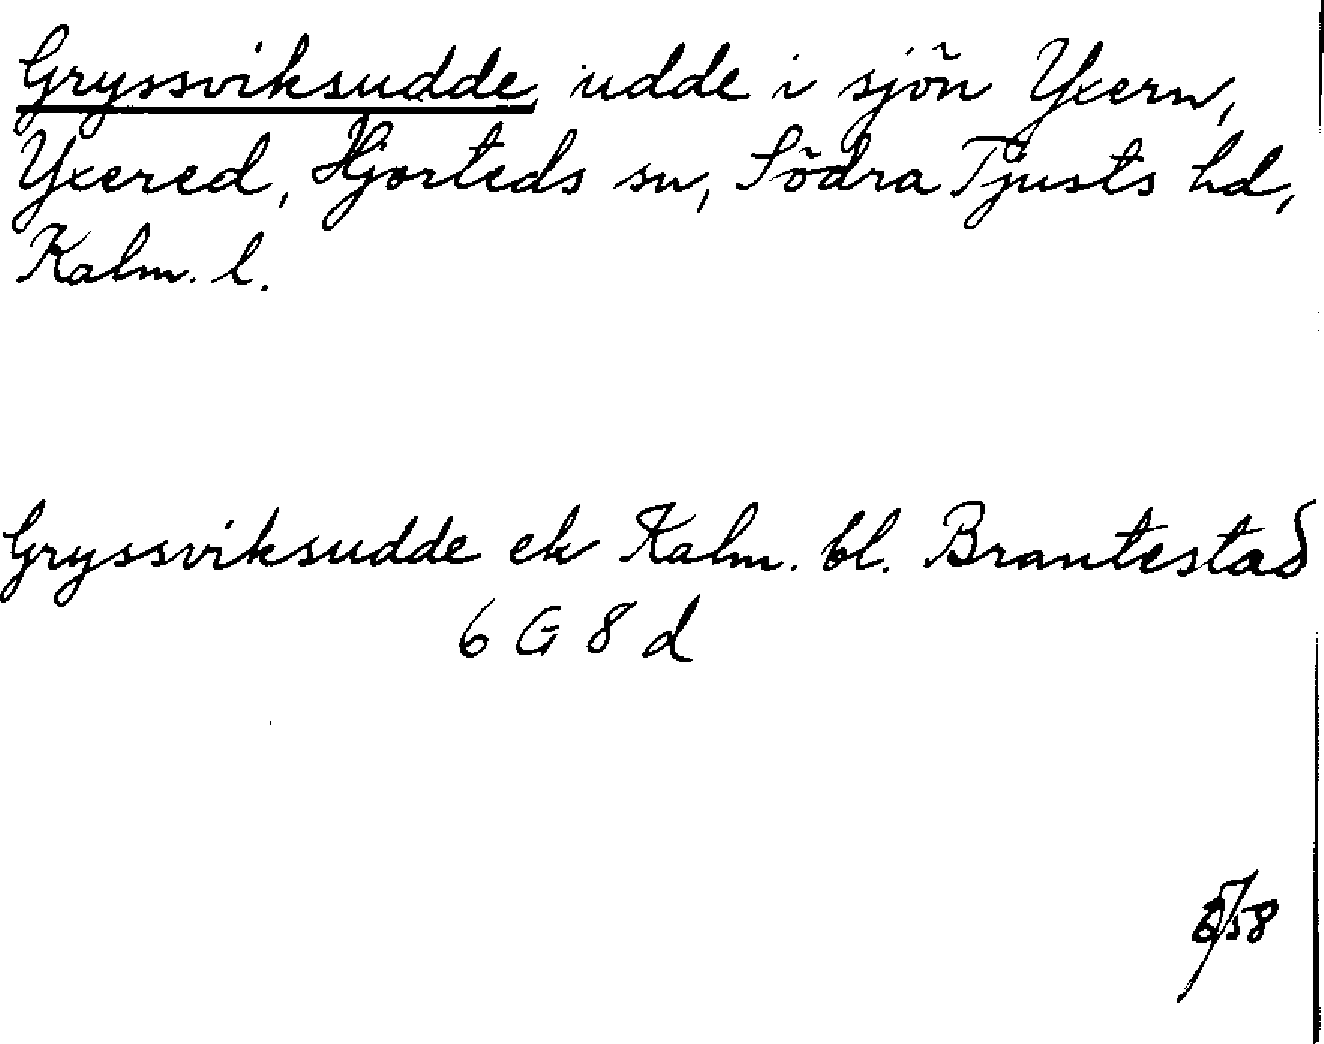 Gryssviksudde, udde i sjön Yxern,
Yxered, Hjorteds sn, Södra Tjusts hd,
Kalm. l.
Gryssviksudde ek Kalm. bl. Brantestad
6 G 8 d